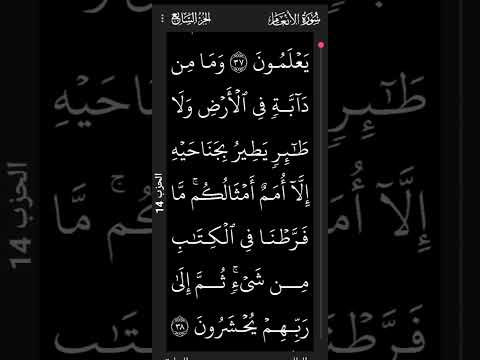 سُورَةُ الأَنْعَامِ الجُزْءُ السَّابِعُ
يَعْلَمُونَ ٣٧ وَمَا مِن
دَآبَّةٖ فِي ٱلۡأَرۡضِ وَلَا
طَٰٓئِرٖ يَطِيرُ بِجَنَاحَيۡهِ
إِلَّآ أُمَمٌ أَمۡثَالُكُمۚ مَّا
فَرَّطۡنَا فِي ٱلۡكِتَٰبِ
مِن شَيۡءٖۚ ثُمَّ إِلَىٰ
رَبِّهِمۡ يُحۡشَرُونَ ٣٨
الحزب 14